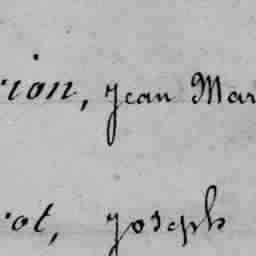 rion, Jean Mar
rot, Joseph